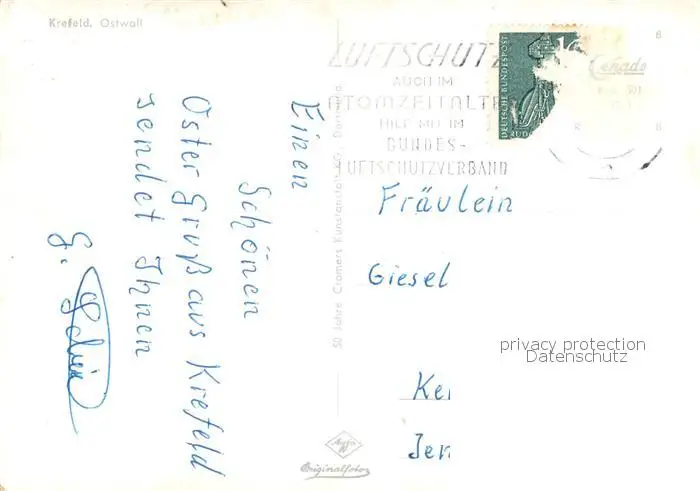 Krefeld. Ostwall
LUFTSCHUTZ
AUCH IM
ATOMZEITALTE
HILF MIT IM
BUNDES-
LUFTSCHUTZVERBAND
DEUTSCHE BUNDESPOST
Einen
Schönen
Oster Gruß aus Krefeld
sendet Ihnen
G.
50 Jahre Cramers Kunstanstalt KG., Dortmund
Fräulein
Giesel
privacy protection
Datenschutz
Ke
Jen
Agfa
Originalfoto